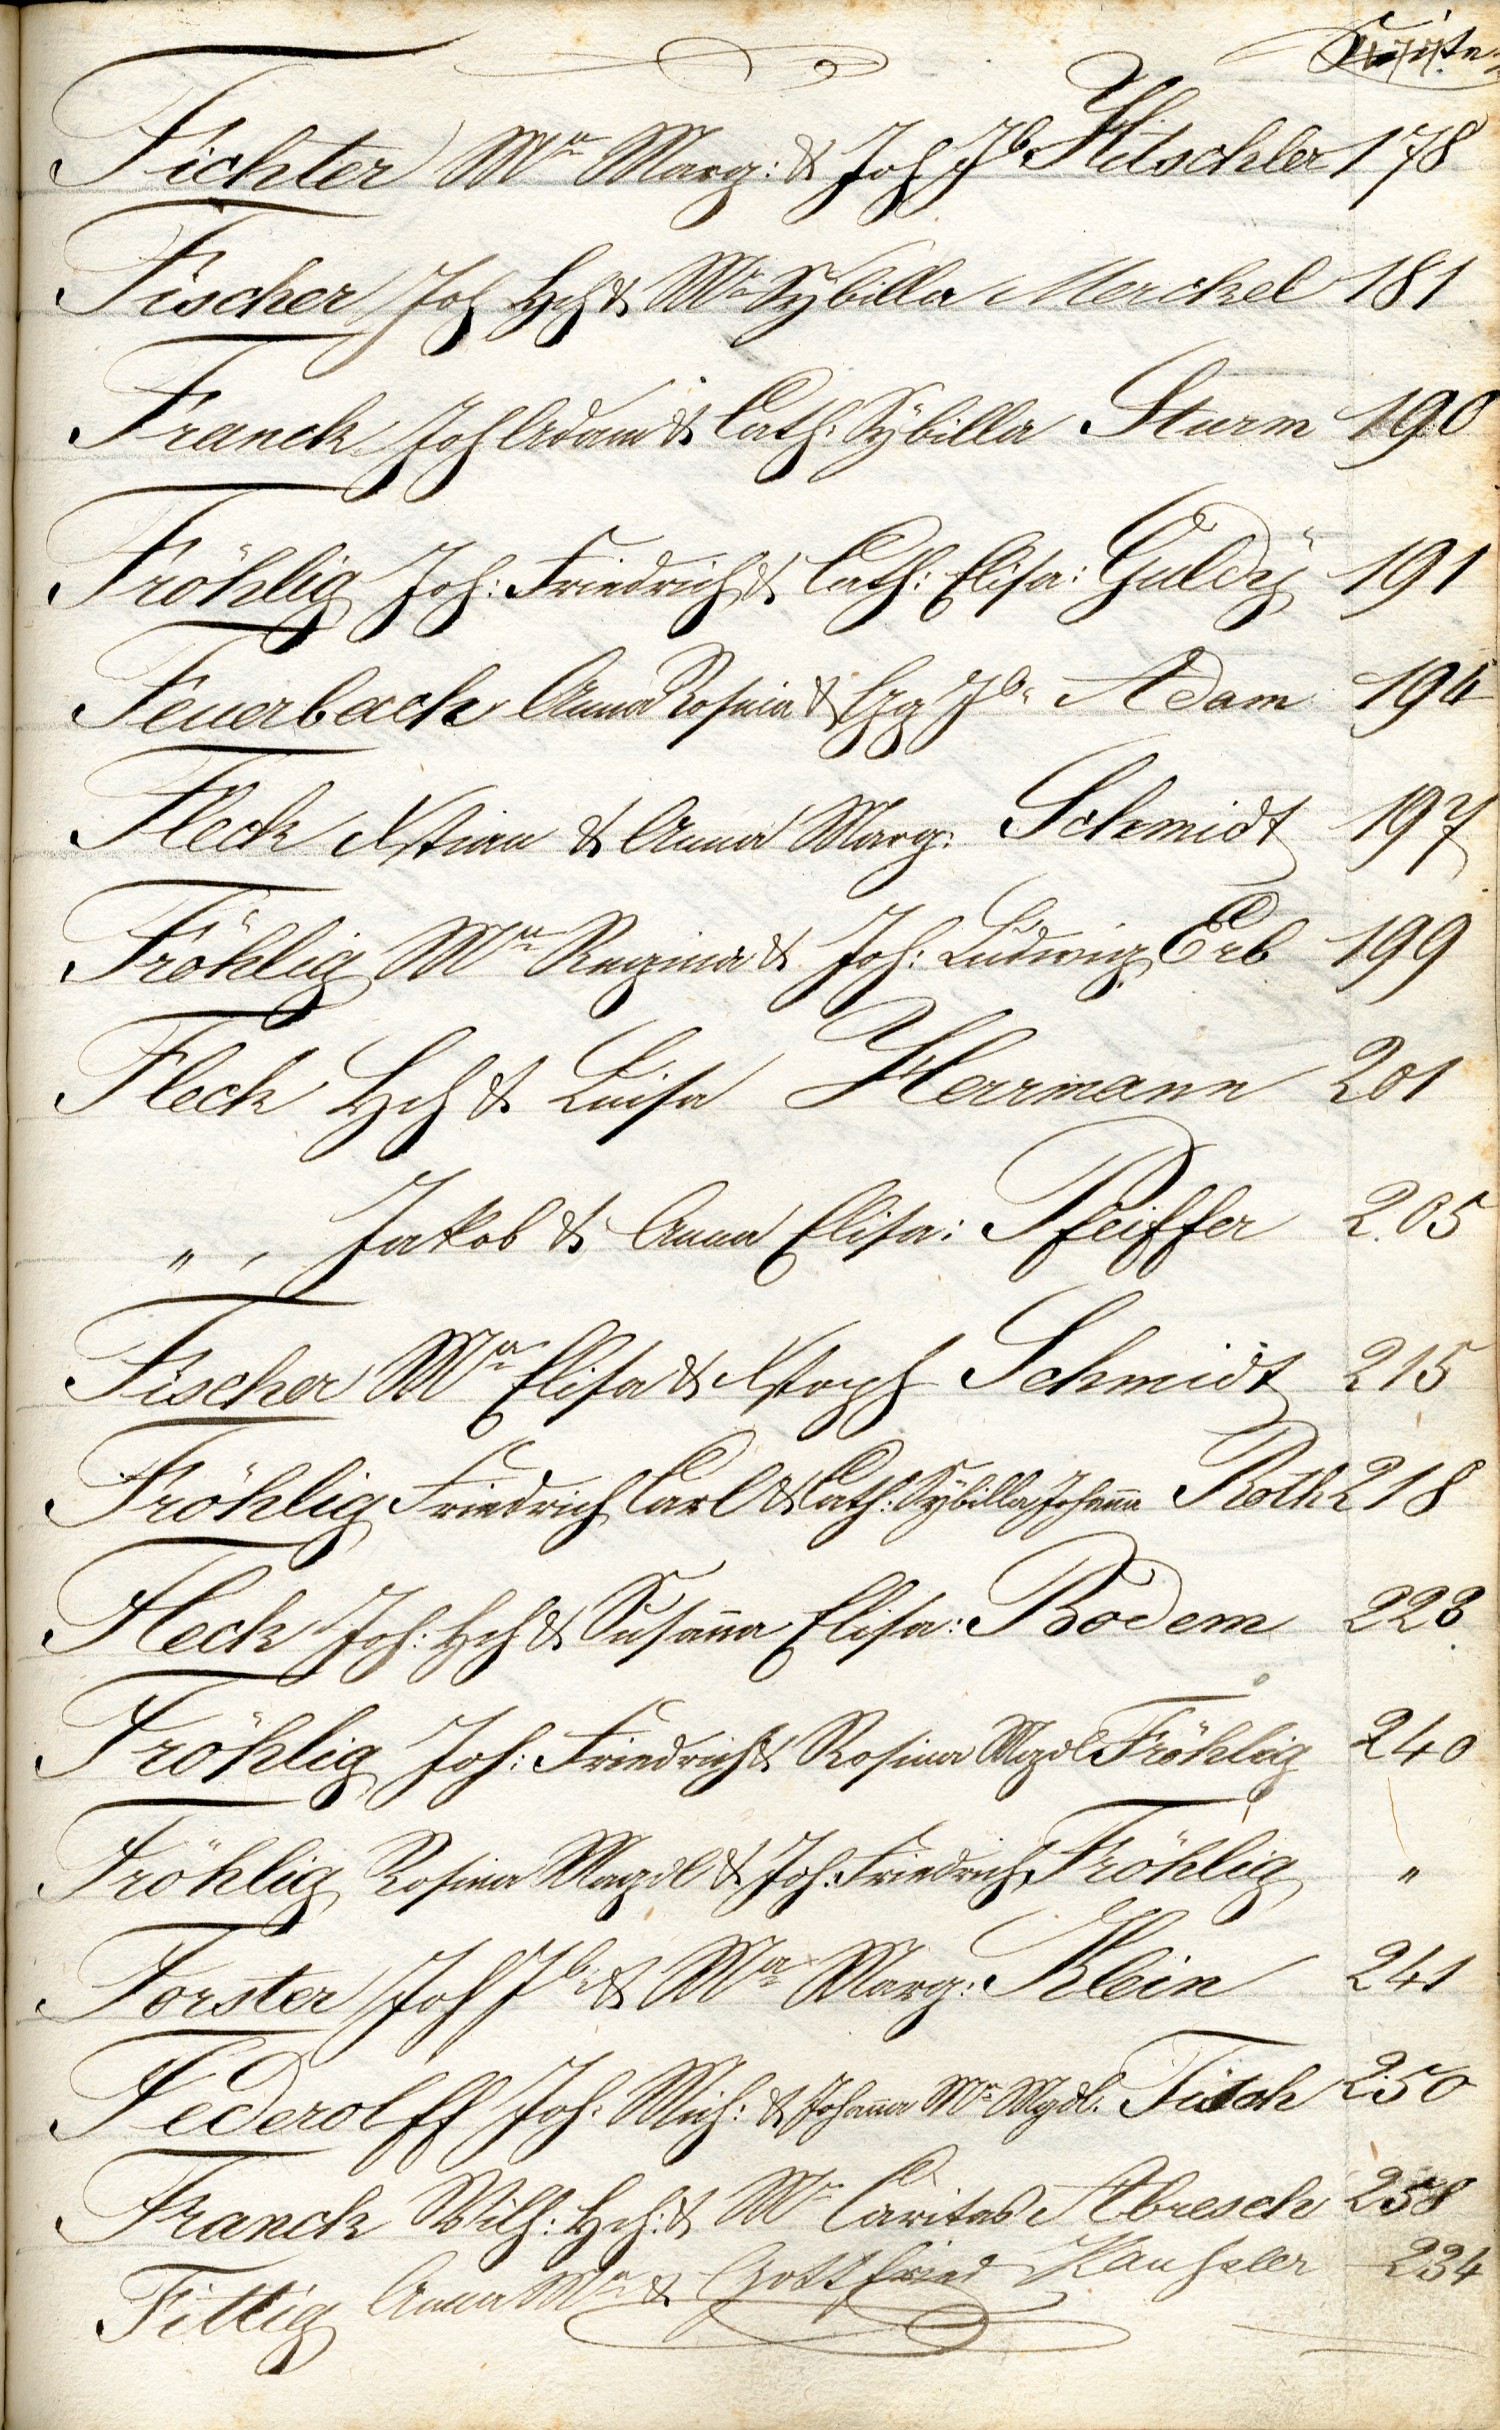 Seite
Fichter Mᵃ Marg: & Joh Jᵇ Hitschler 178
Fischer Joh Hch & Mᵃ Sÿbilla Merckel 181
Franck Joh Adam & Cath: Sÿbilla Sturm 190
Fröhlig Joh: Friedrich & Cath: Elisa: Guldÿ 191
Feuerbach Anna Rosina & Gg Jᵇ Adam 194
Fleck Xstian & Anna Marg: Schmidt 197
Fröhlig Mᵃ Regina & Joh: Ludwig Erb 199
Fleck Hch & Luisa Herrmann 201
" , Jakob & Anna Elisa: Pfeiffer 205
Fischer Mᵃ Elisa & Xstoph Schmidt 215
Fröhlig Friedrich Carl & Cath: Sÿbilla Johanna Roth 218
Fleck Joh: Hch & Susaña Elisa: Bodem 223
Fröhlig Joh: Friedrich & Rosina Mgdl Fröhlig 240
Fröhlig Rosina Magdl & Joh: Friedrich Fröhlig "
Forster Joh Jᵇ & Mᵃ Marg: Klein 241
Federolff Joh: Mich: & Johanna Mᵃ Mgdl. Tisch 250
Franck Wilh: Hch: & Mᵃ Caritas Abresch 258
Fittig Anna Mᵃ & Gottfried 234